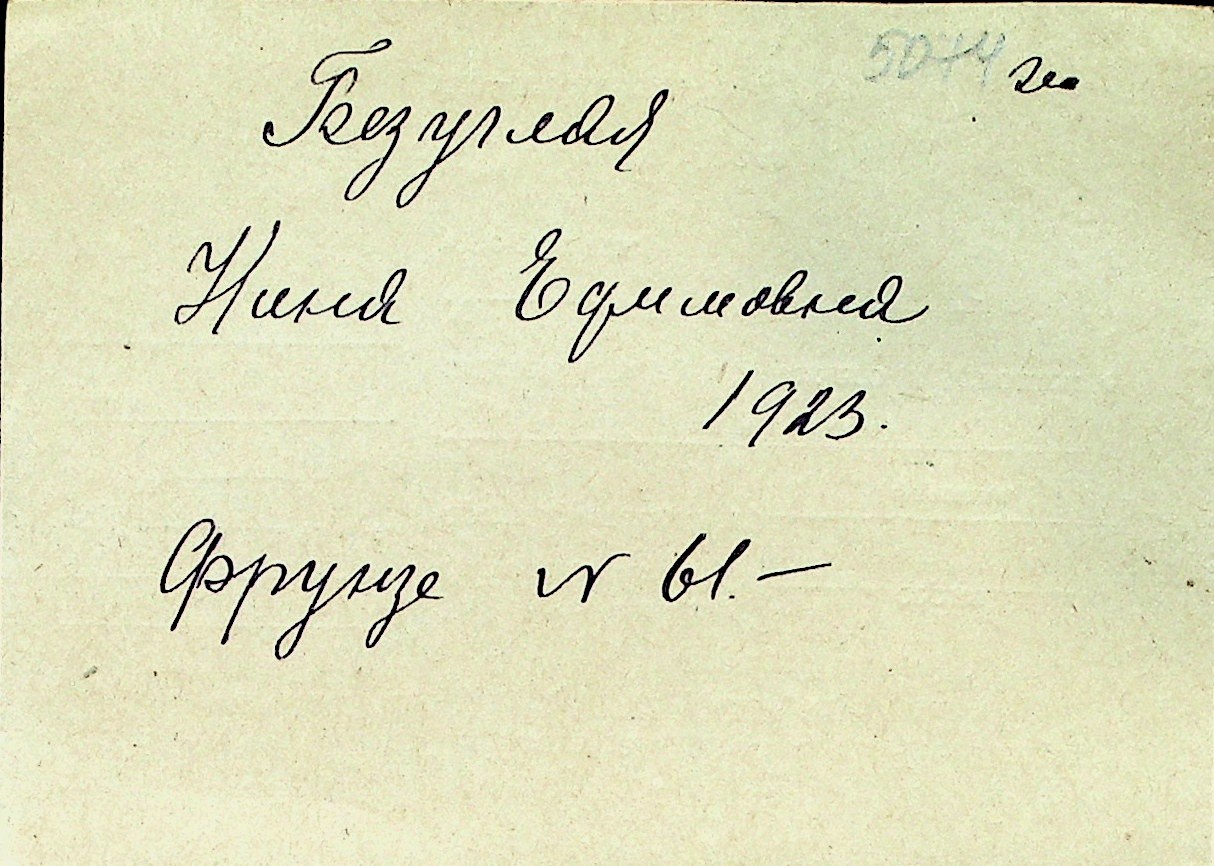 5044
Безуглая
Нина Ефимовна
1923.
Фрунзе N 61.—